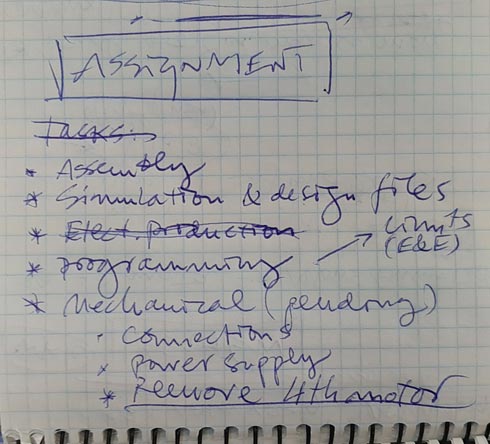 ASSIGNMENT
Tasks:
* Assembly
* Simulation & design files
* Elect. production
* programming
limits
(E&E)
* Mechanical (pending)
· Connections
* power supply
* Remove 4th motor